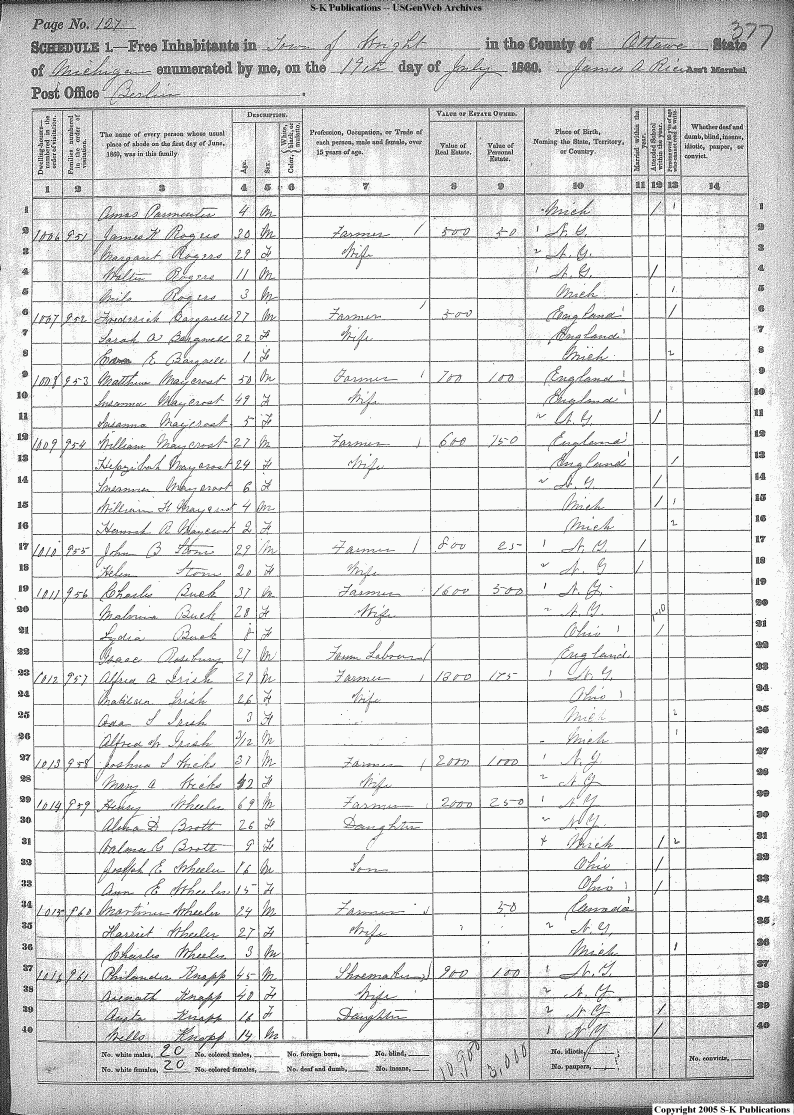 S-K Publications -- USGenWeb Archives
Page No. 127
377
SCHEDULE 1.—Free Inhabitants in Town of Wright in the County of Ottawa State
of Michigan enumerated by me, on the 19th day of July 1860. James A Rice Ass't Marshal.
Post Office Berlin
Dwelling-houses—numbered in the order of visitation.
Families numbered in the order of visitation.
The name of every person whose usual place of abode on the first day of June, 1860, was in this family
DESCRIPTION.
Age.
Sex.
Color, White, black, or mulatto.
Profession, Occupation, or Trade of each person, male and female, over 15 years of age.
VALUE OF ESTATE OWNED.
Value of Real Estate.
Value of Personal Estate.
Place of Birth, Naming the State, Territory, or Country.
Married within the year.
Attended School within the year.
Persons over 20 y'rs of age who cannot read & write.
Whether deaf and dumb, blind, insane, idiotic, pauper, or convict.
1 2 3 4 5 6 7 8 9 10 11 12 13 14
1 Amos Parmenter 4 M Mich / 1 1
2 1006 951 James W Rogers 30 M Farmer / 500 50 N.Y. 2
3 Margaret Rogers 29 F Wife N.Y. 3
4 Walter Rogers 11 M N.Y. / 4
5 Milo Rogers 3 M Mich 5
6 1007 952 Frederick Bagwell 27 M Farmer 500 England / 6
7 Sarah A Bagwell 22 F Wife England 7
8 E Bagwell 1 F Mich 8
9 1008 953 Matthew Maycrost 50 M Farmer 700 100 England 9
10 Susanna Maycrost 49 F Wife England 10
11 Susanna Maycrost 5 F N.Y. / 11
12 1009 954 William Maycrost 27 M Farmer 600 150 England 12
13 Hepzibah Maycrost 24 F Wife England / 13
14 Susanna Maycrost 6 F N.Y. / 14
15 William H Maycrost 4 M Mich / 15
16 Hannah A Maycrost 2 F Mich 16
17 1010 955 John B Stom 29 M Farmer 800 25 N.Y. / 17
18 Helen Stom 20 F Wife N.Y. / 18
19 1011 956 Charles Buck 31 M Farmer 1600 300 N.Y. 19
20 Malvina Buck 28 F Wife N.Y. 20
21 Lydia Buck 8 F Ohio / 21
22 Isaac Rosbury 27 M Farm Laborer England 22
23 1012 957 Alfred A Irish 29 M Farmer 1300 175 N.Y. 23
24 Matilda Irish 26 F Wife Ohio 24
25 Ada L Irish 3 F Mich 25
26 Alfred W Irish 3/12 M Mich 26
27 1013 958 Joshua S Hicks 31 M Farmer 2000 1000 N.Y. 27
28 Mary A Hicks 42 F Wife N.Y. 28
29 1014 959 Henry Wheeler 69 M Farmer 2000 250 N.Y. 29
30 Alma D Brott 26 F Daughter N.Y. 30
31 G Brott 9 F Mich / 31
32 Joseph E Wheeler 16 M Son Ohio / 32
33 Ann E Wheeler 15 F Ohio / 33
34 1015 960 Mortimer Wheeler 24 M Farmer 50 Canada 34
35 Harriet Wheeler 27 F Wife N.Y. 35
36 Charles Wheeler 3 M Mich 36
37 1016 961 Philander Knapp 45 M Shoemaker 900 100 N.Y. 37
38 Asenath Knapp 40 F Wife N.Y. 38
39 Knapp 16 F Daughter N.Y. / 39
40 Wells Knapp 14 M N.Y. / 40
No. white males, 20 No. colored males, No. foreign born, No. blind, 10,900 3,000 No. idiotic, No. convicts,
No. white females, 20 No. colored females, No. deaf and dumb, No. insane, No. paupers,
Copyright 2005 S-K Publications